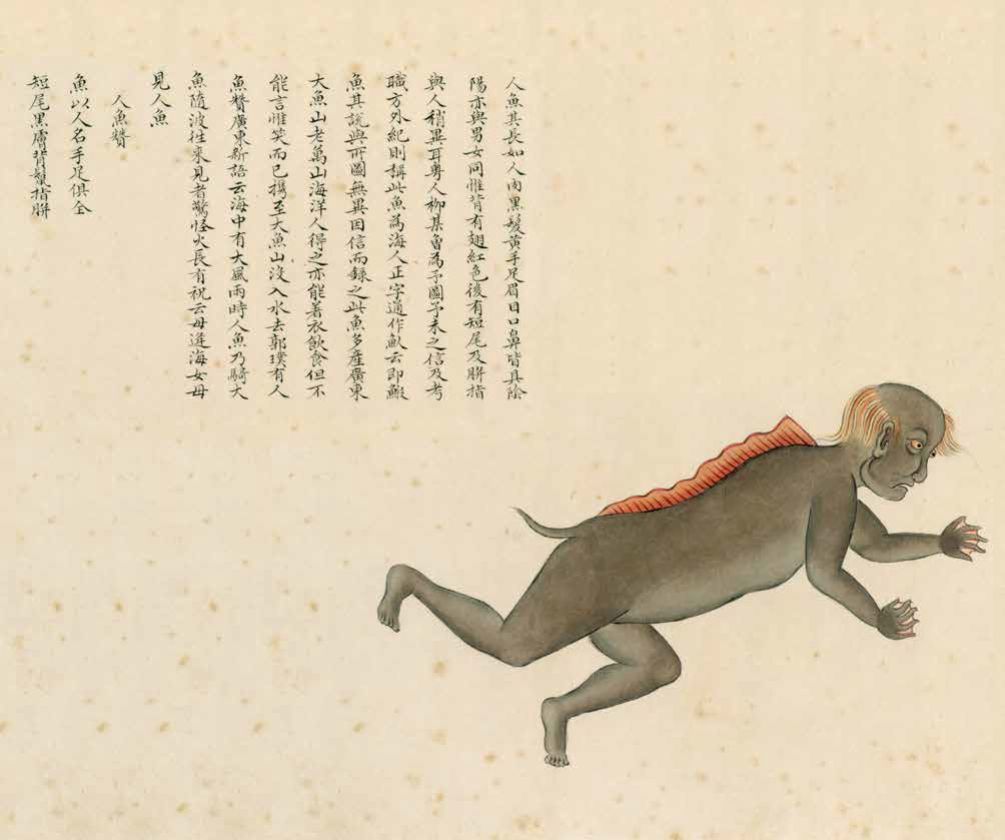 人魚其長如人肉黑髮黃手足眉目口鼻皆具陰
陽亦與男女同惟背有翅紅色後有短尾及胼指
與人稍異耳粵人柳某曾為予圖予未之信及考
職方外紀則稱此魚為海人正字通作䱱云即鯢
魚其說與所圖無異因信而錄之此魚多產廣東
大魚山老萬山海洋人得之亦能著衣飲食但不
能言惟笑而已携至大魚山沒入水去郭璞有人
魚贊廣東新語云海中有大風雨時人魚乃騎大
魚隨波往來見者驚怪火長有祝云毋逢海女毋
見人魚
人魚贊
魚以人名手足俱全
短尾黑膚背鬣指胼